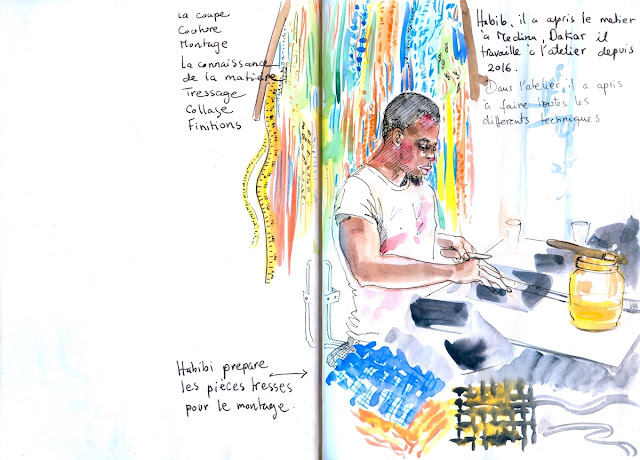 La coupe
Couture
Montage
La connaissance
de la matière
Tressage
Collage
Finitions
Habib, il a apris le metier
à Medina, Dakar il
travaille à l'atelier depuis
2016.
Dans l'atelier il a apris
à faire toutes les
differents techniques
Habibi prepare
les pièces tresses
pour le montage.